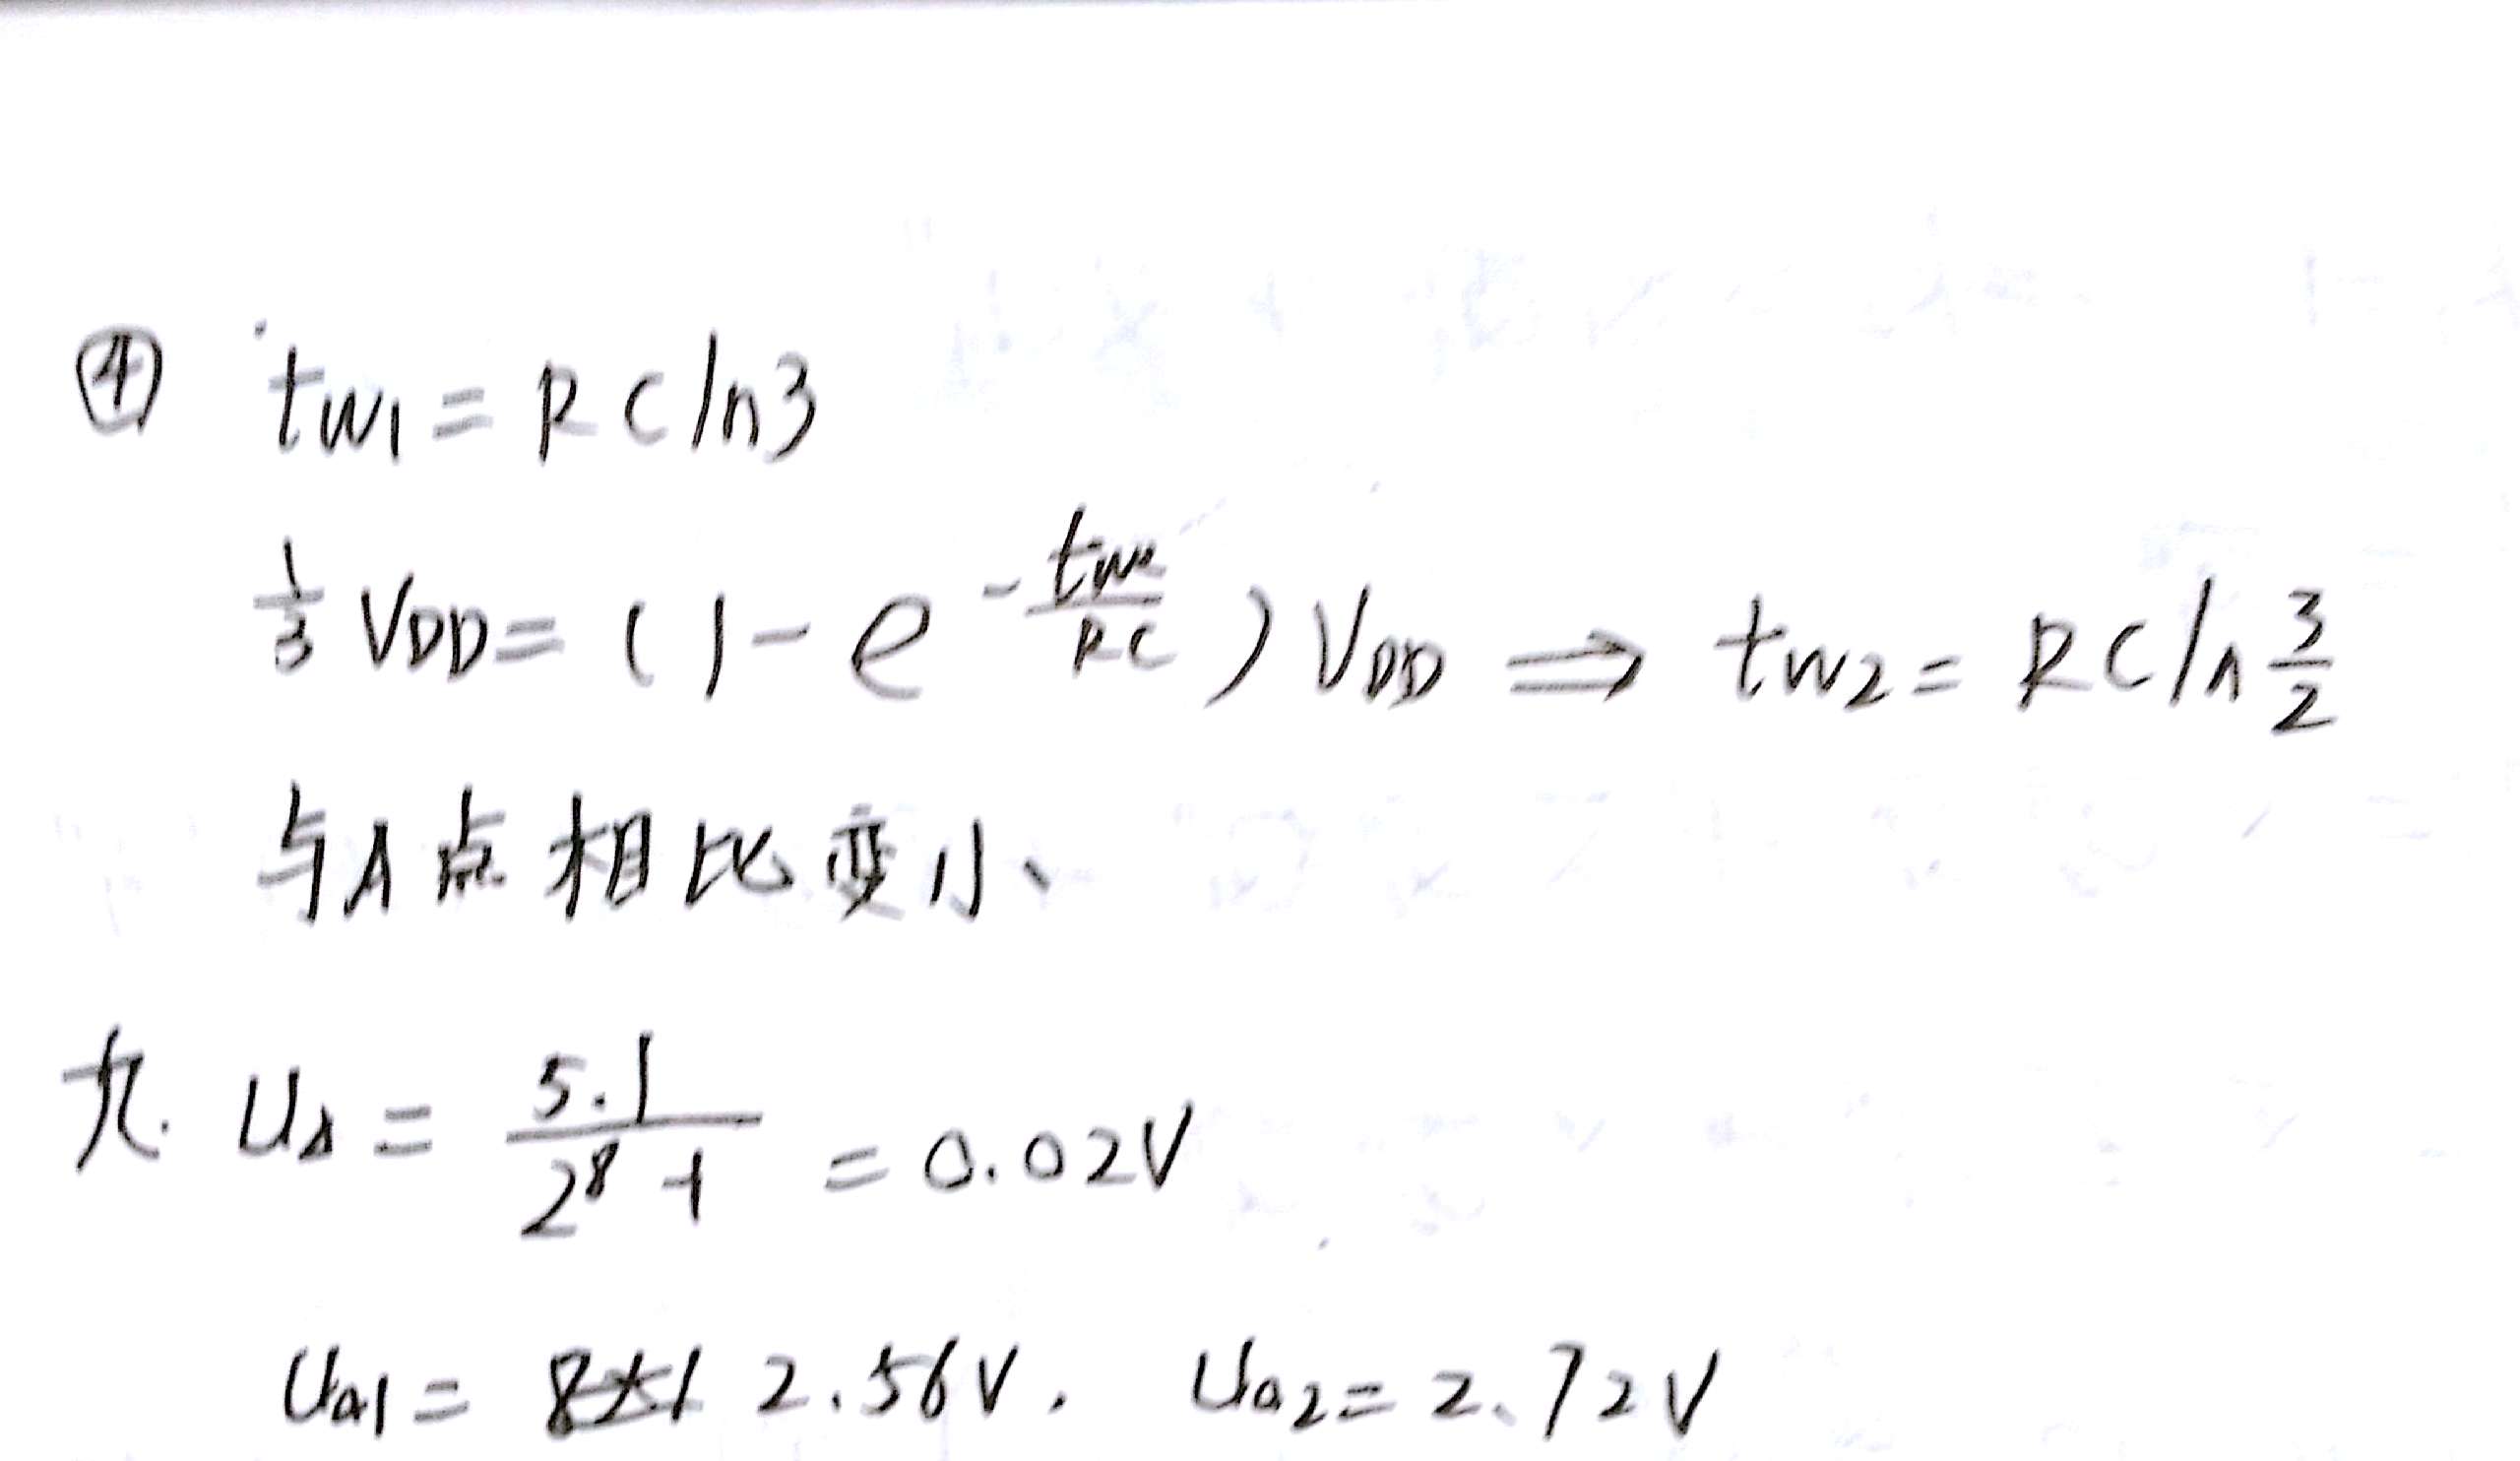 ④ tw1 = RCln3
1/3 VDD = (1 - e^(-tw2/RC)) VDD ⇒ tw2 = RCln 3/2
与A点相比变小
九. UΔ = 5.1/(2^8 - 1) = 0.02V
Ua1 = 2.56V. Ua2 = 2.72V